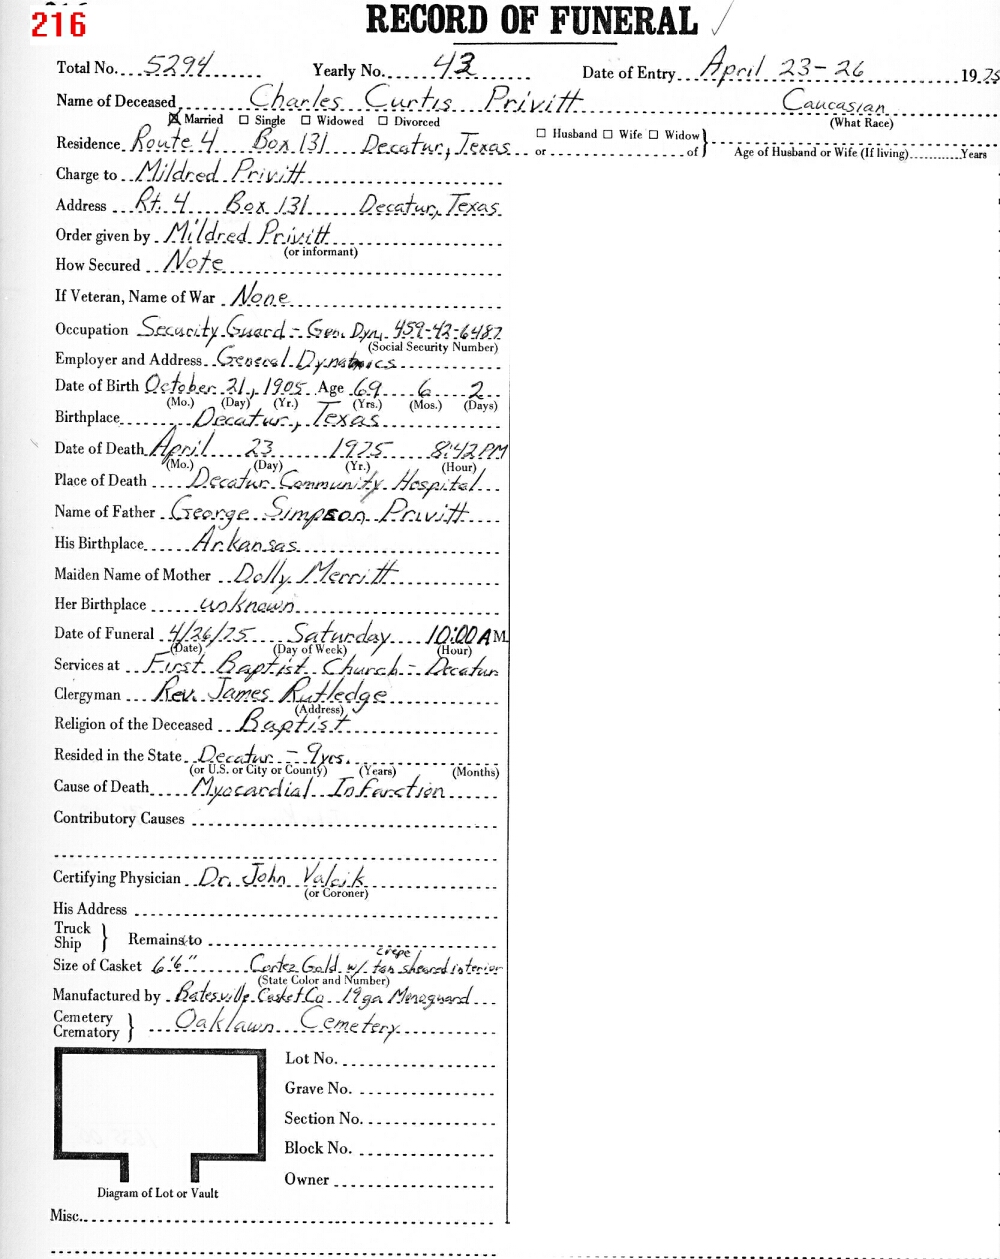 216
RECORD OF FUNERAL
Total No. 5294 Yearly No. 43 Date of Entry April 23-26 1975
Name of Deceased Charles Curtis Privitt Caucasian
☒ Married ☐ Single ☐ Widowed ☐ Divorced (What Race)
Residence Route 4 Box 131 Decatur, Texas ☐ Husband ☐ Wife ☐ Widow
or of Age of Husband or Wife (If living) Years
Charge to Mildred Privitt
Address Rt. 4 Box 131 Decatur, Texas
Order given by Mildred Privitt
(or informant)
How Secured Note
If Veteran, Name of War None
Occupation Security Guard - Gen. Dyn. 459-42-6487
(Social Security Number)
Employer and Address General Dynamics
Date of Birth October 21, 1905 Age 69 6 2
(Mo.) (Day) (Yr.) (Yrs.) (Mos.) (Days)
Birthplace Decatur, Texas
Date of Death April 23 1975 8:42 PM
(Mo.) (Day) (Yr.) (Hour)
Place of Death Decatur Community Hospital
Name of Father George Simpson Privitt
His Birthplace Arkansas
Maiden Name of Mother Dolly Merritt
Her Birthplace unknown
Date of Funeral 4/26/75 Saturday 10:00 A M.
(Date) (Day of Week) (Hour)
Services at First Baptist Church - Decatur
Clergyman Rev. James Rutledge
(Address)
Religion of the Deceased Baptist
Resided in the State Decatur - 9 yrs.
(or U.S. or City or County) (Years) (Months)
Cause of Death Myocardial Infarction
Contributory Causes
Certifying Physician Dr. John Valcik
(or Coroner)
His Address
Truck
Ship } Remains to
crepe
Size of Casket 6'6" Cortez Gold w/ tan sheared interior
(State Color and Number)
Manufactured by Batesville Casket Co 19ga Monoguard
Cemetery
Crematory } Oaklawn Cemetery
Lot No.
Grave No.
Section No.
Block No.
Owner
Diagram of Lot or Vault
Misc.